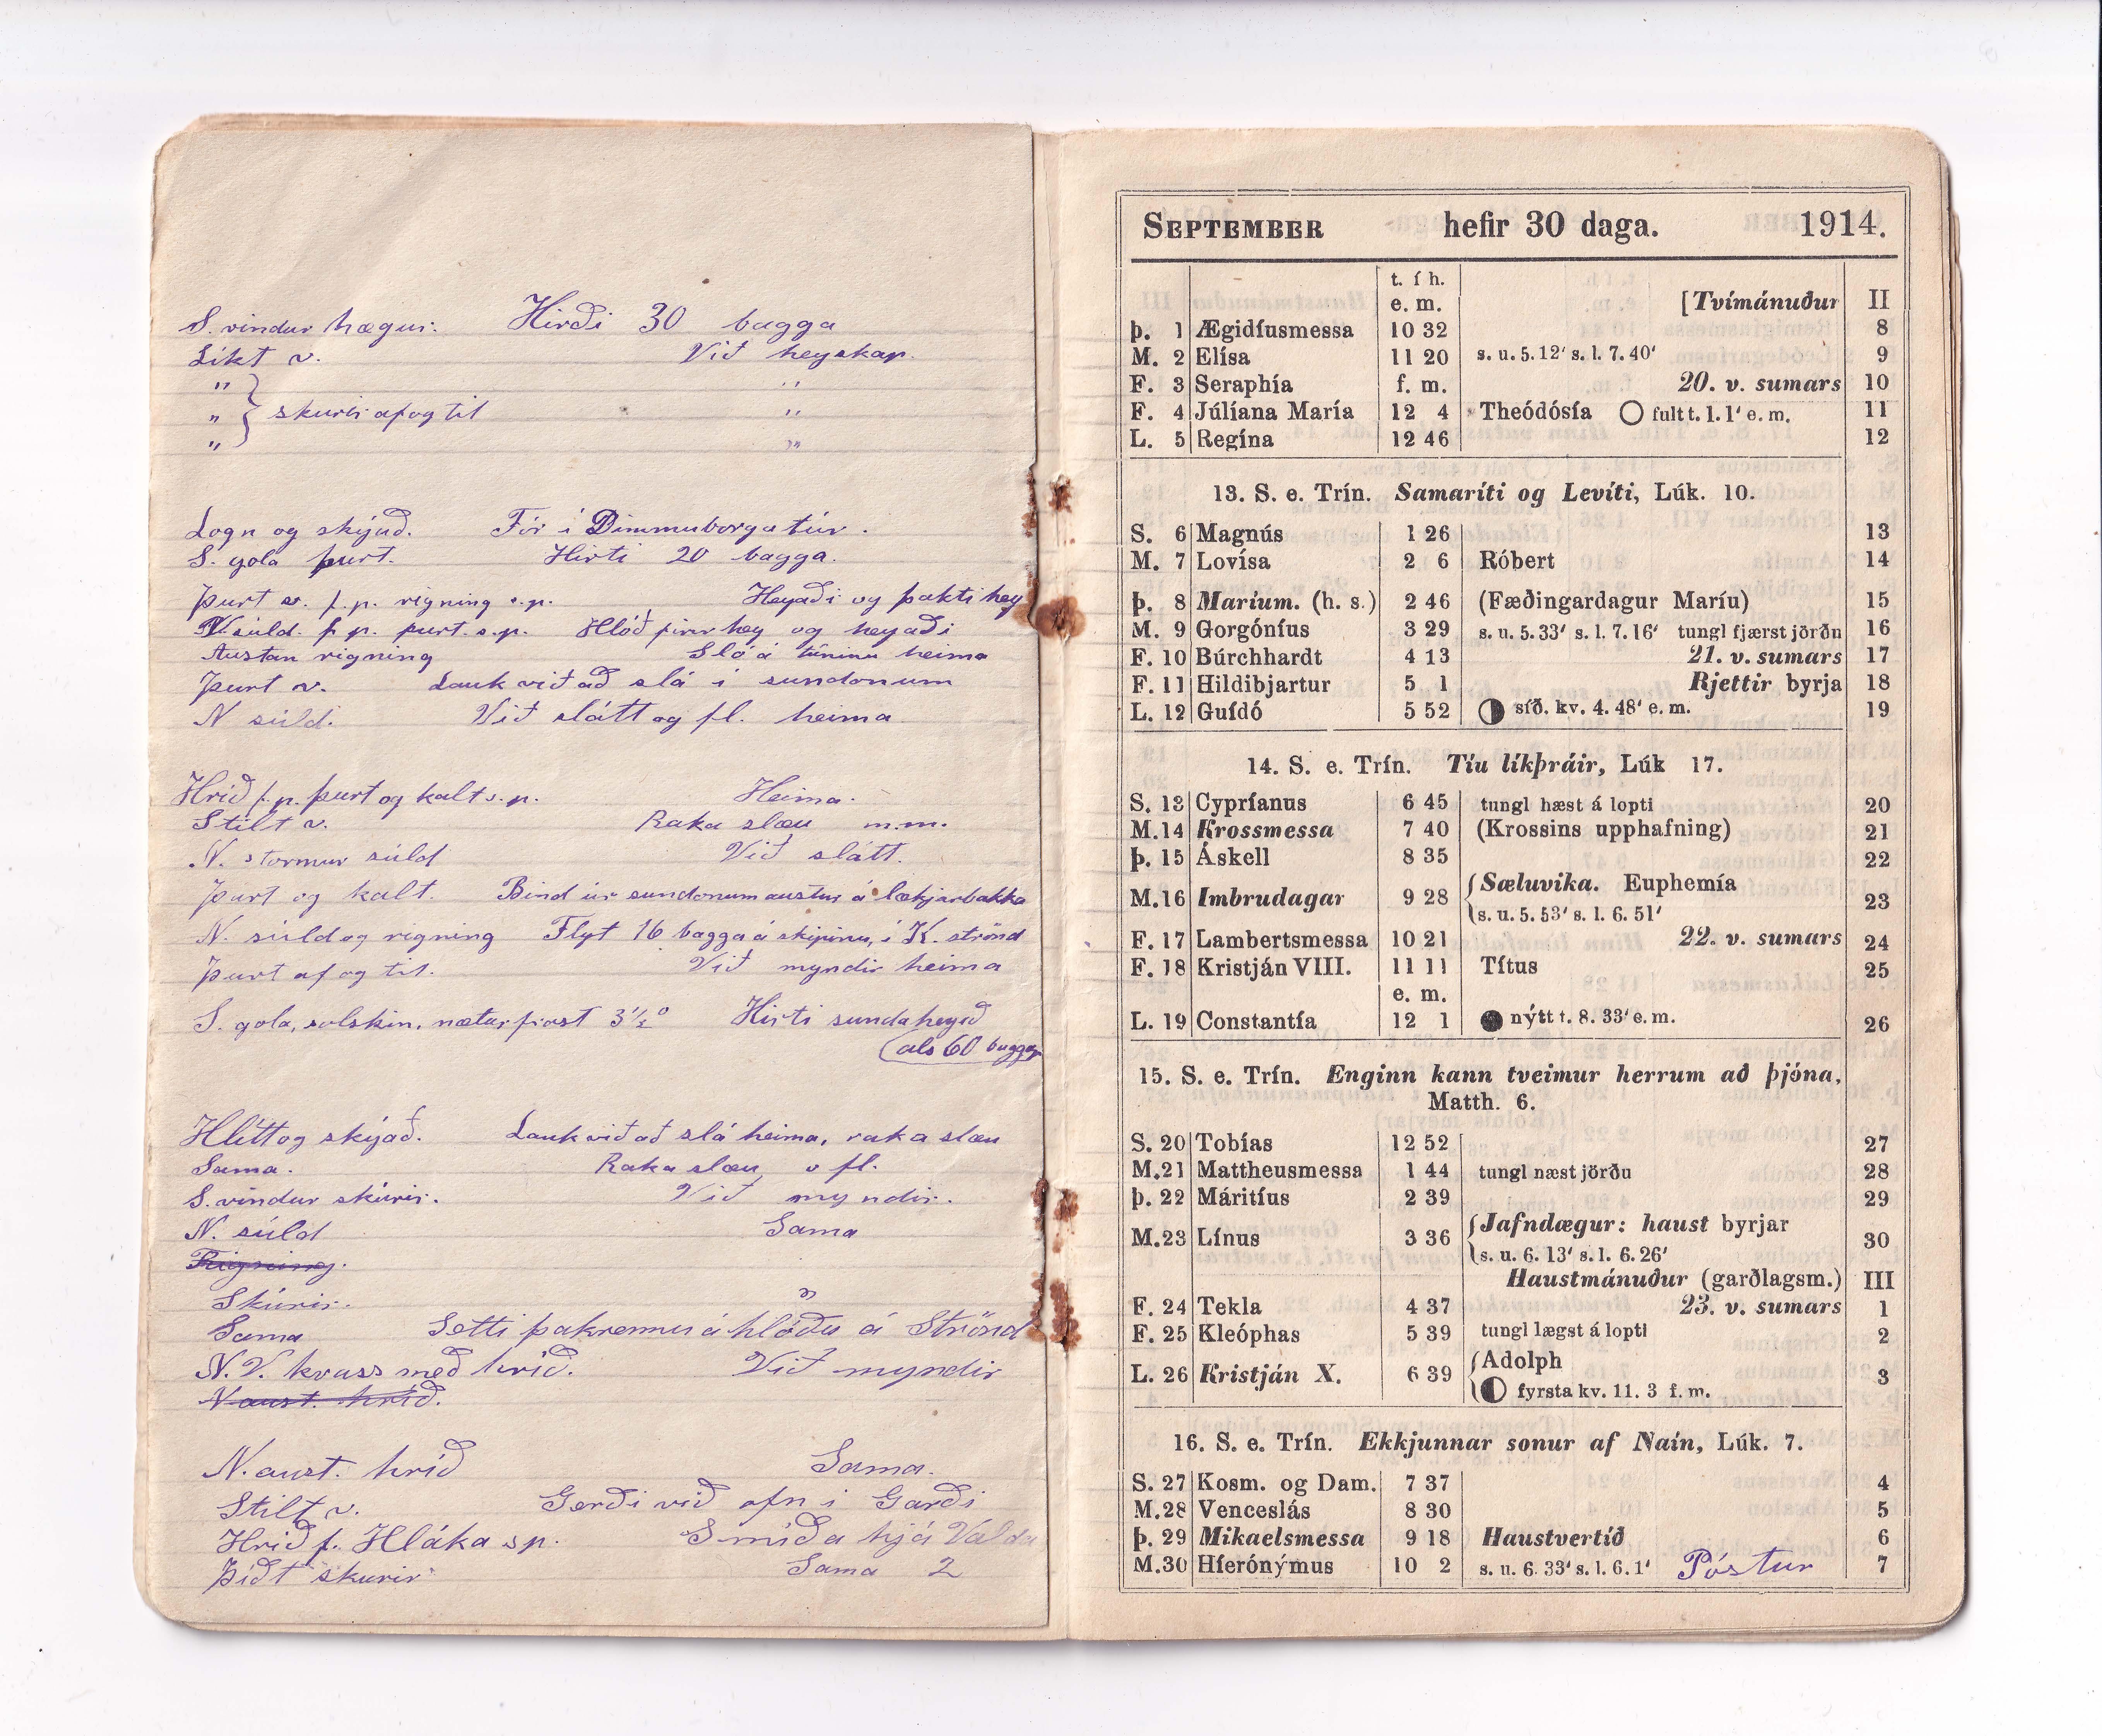 S. vindur hægur. Hirði 30 bagga
Líkt v. Við heyskap.
" "
" } skurir af og til "
" "
Logn og skýjað. Fór í Dimmuborgatúr.
S. gola þurt. Hirti 20 bagga.
Þurt v. f.p. rigning s.p. Heyaði og þakti hey
N súld. f.p. þurt. s.p. Hlóð fyrir hey og heyaði
Austan rigning Sló á túninu heima
Þurt v. Lauk við að slá í sundonum
N súld. Við slátt og fl. heima
Hríð f.p. þurt og kalt s.p. Heima.
Stilt v. Raka slæu m.m.
N. stormur súld Við slátt.
Þurt og kalt. Bind úr sundonum austur á lækjarbakka
N. súld og rigning Flyt 16 bagga á skipinu, í K. strönd
Þurt af og til. Við myndir heima
S. gola, solskin, næturfrost 3½° Hirti sundaheyið
(als 60 bagga
Hlítt og skýjað. Lauk við að slá heima, raka slæu
Sama. Raka slæu o fl.
S. vindur skúrir. Við myndir.
N. súld Sama
Rigning.
Skúrir. "
Sama Setti þakrennur á hlöðu á Strönd
N.V. kvass með hríð. Við myndir
N aust. hríð.
N. aust. hríð Sama.
Stilt v. Gerði við ofn í Garði
Hríð f. Hláka s p. Smíða hjá Valda
Þíðt skurir Sama 2
SEPTEMBER hefir 30 daga. 1914.
t. í h.
e. m. [Tvímánuður II
Þ. 1 Ægidíusmessa 10 32 8
M. 2 Elísa 11 20 s. u. 5. 12' s. l. 7. 40' 9
F. 3 Seraphía f. m. 20. v. sumars 10
F. 4 Júlíana María 12 4 Theódósía fult t. 1. 1' e. m. 11
L. 5 Regína 12 46 12
13. S. e. Trín. Samaríti og Levíti, Lúk. 10.
S. 6 Magnús 1 26 13
M. 7 Lovísa 2 6 Róbert 14
Þ. 8 Maríum. (h. s.) 2 46 (Fæðingardagur Maríu) 15
M. 9 Gorgóníus 3 29 s. u. 5. 33' s. l. 7. 16' tungl fjærst jörðn 16
F. 10 Búrchhardt 4 13 21. v. sumars 17
F. 11 Hildibjartur 5 1 Rjettir byrja 18
L. 12 Guídó 5 52 síð. kv. 4. 48' e. m. 19
14. S. e. Trín. Tíu líkþráir, Lúk 17.
S. 13 Cypríanus 6 45 tungl hæst á lopti 20
M. 14 Krossmessa 7 40 (Krossins upphafning) 21
Þ. 15 Áskell 8 35 22
M. 16 Imbrudagar 9 28 {Sæluvika. Euphemía 23
s. u. 5. 53' s. l. 6. 51'
F. 17 Lambertsmessa 10 21 22. v. sumars 24
F. 18 Kristján VIII. 11 11 Títus 25
e. m.
L. 19 Constantía 12 1 nýtt t. 8. 33' e. m. 26
15. S. e. Trín. Enginn kann tveimur herrum að þjóna,
Matth. 6.
S. 20 Tobías 12 52 27
M. 21 Mattheusmessa 1 44 tungl næst jörðu 28
Þ. 22 Máritíus 2 39 29
M. 23 Línus 3 36 {Jafndægur: haust byrjar 30
s. u. 6. 13' s. l. 6. 26'
Haustmánuður (garðlagsm.) III
F. 24 Tekla 4 37 23. v. sumars 1
F. 25 Kleóphas 5 39 tungl lægst á lopti 2
L. 26 Kristján X. 6 39 {Adolph 3
fyrsta kv. 11. 3 f. m.
16. S. e. Trín. Ekkjunnar sonur af Naín, Lúk. 7.
S. 27 Kosm. og Dam. 7 37 4
M. 28 Venceslás 8 30 5
Þ. 29 Mikaelsmessa 9 18 Haustvertíð 6
M. 30 Híerónýmus 10 2 s. u. 6. 33' s. l. 6. 1' Póstur 7